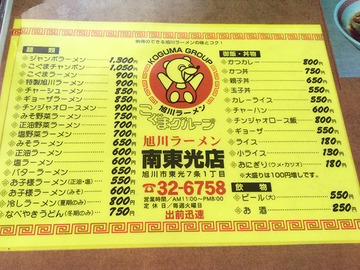 納得のできる旭川ラーメンの味とコク!
麺類
ジャンボラーメン 1,300円
こぐまチャンポン 1,050円
こぐまラーメン 900円
特製旭川ラーメン 900円
チャーシューメン 850円
ギョーザラーメン 850円
チンジャオロースメン 900円
みそ野菜ラーメン 750円
正油野菜ラーメン 700円
塩野菜ラーメン 700円
みそラーメン 650円
正油ラーメン 600円
塩ラーメン 600円
バターラーメン 650円
お子様ラーメン(正油・塩) 550円
お子様ラーメン(みそ) 600円
冷しラーメン(夏期のみ) 800円
なべやきうどん(冬期のみ) 750円
KOGUMA GROUP
旭川ラーメン
こぐまグループ
旭川ラーメン
南東光店
旭川市東光7条1丁目
☎32-6758
営業時間/AM11:00〜PM8:00
定休日/毎週火曜日
出前迅速
御飯・丼物
カツカレー 800円
カツ丼 750円
親子丼 650円
玉子丼 550円
カレーライス 550円
チャーハン 600円
チンジャオロース飯 800円
ギョーザ 550円
ライス 180円
小ライス 130円
おにぎり(ウメ・カツオ) 180円
※大盛りは100円増しです。
飲物
ビール(大) 550円
お酒 250円